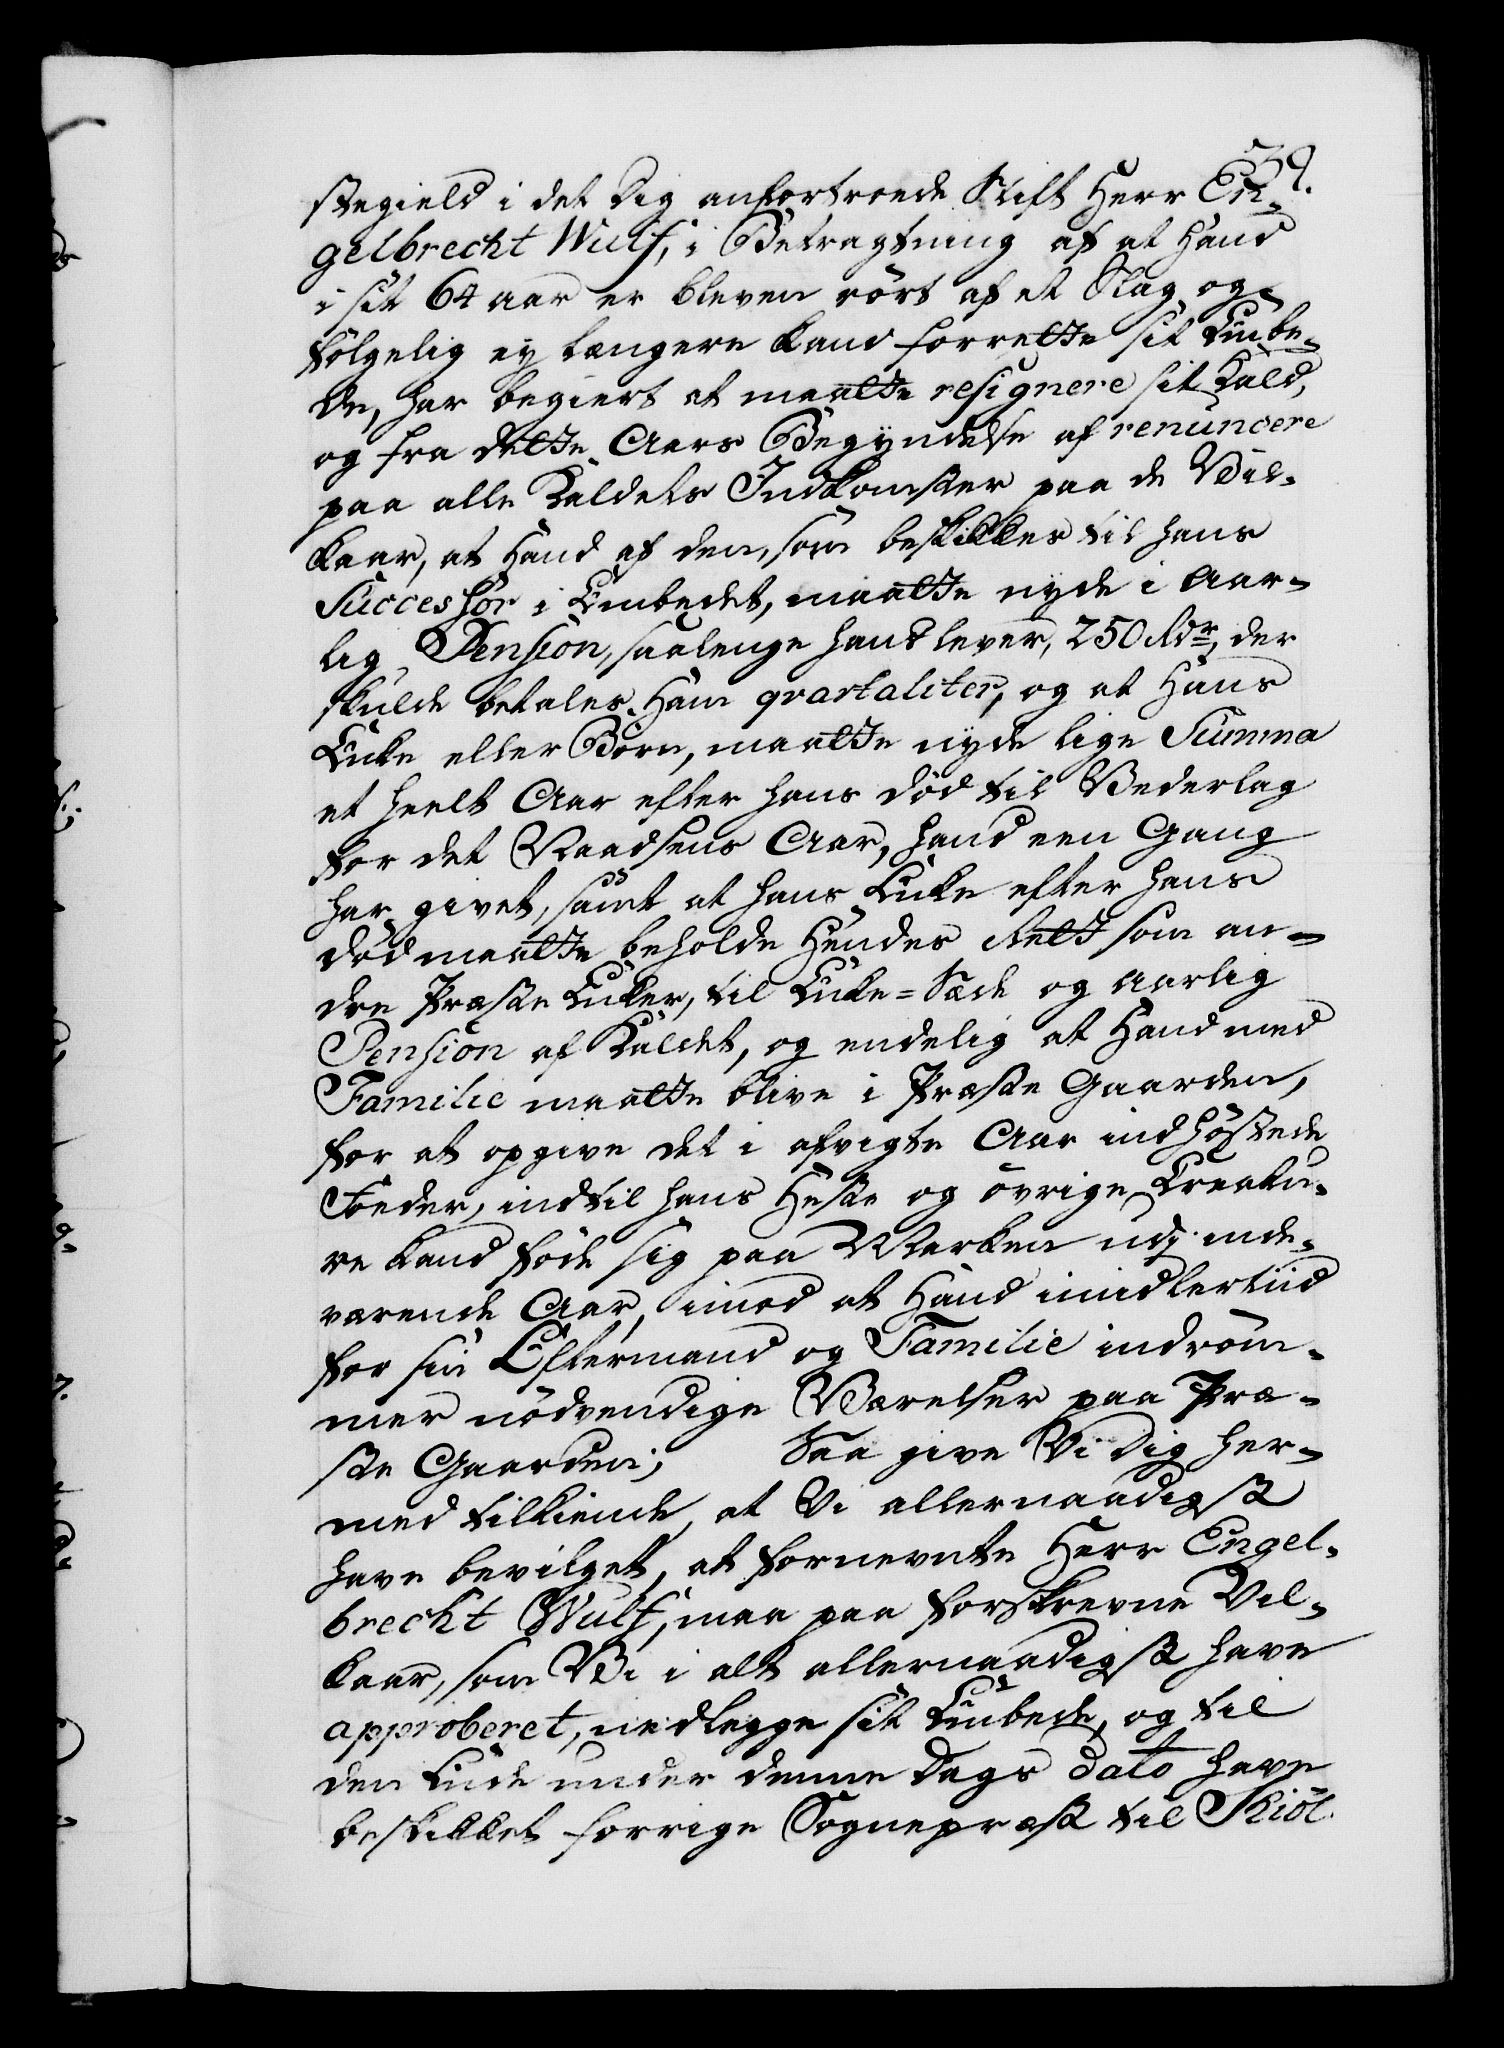 39.
stegield i det dig anfortroede Stift Herr En-
gelbrecht Wulf, i Betragtning af at Hand
i sit 64 aar er bleven rört af et Slag og
fölgelig ey længere kand forrette sit Embe-
de, har begiert at maatte resignere sit Kald,
og fra dette Aars Begyndelse af renuncere
paa alle Kaldets Indkomster paa de Vil-
kaar, at Hand af den, som beskikkes til hans
Successor i Embedet, maatte nyde i aar-
lig Pension, saalenge hand lever, 250 Rdr, der
skulde betales Ham qvartaliter, og at Hans
Enke eller Börn, maatte nyde lige Summa
et heelt Aar efter hans död til Vederlag
for det Naadsens Aar, hand een Gang
har givet, samt at hans Enke efter hans
död maatte beholde Hendes Rett som an-
dre Præste Enker, til Enke-Sæde og aarlig
Pension af Kaldet, og endelig at Hand med
Familie maatte blive i Præste Gaarden,
for at opgive det i afvigte Aar indhöstede
Foeder, indtil hans Heste og övrige Creatu-
re kand föde sig paa Marken udj inde-
værende Aar, imod at Hand imidlertiid
for sin Eftermand og Familie indröm-
mer nödvendige Værelser paa Præ-
ste Gaarden; Saa give Vi dig her-
med tilkiende, at Vi allernaadigst
have bevilget, at fornevnte Herr Engel-
brecht Wulf, maa paa forskrevne Vil-
kaar, som Vi i alt allernaadigst have
approberet, nedlegge sit Embede, og til
den Ende under denne Dags dato have
beskikket forrige Sognepræst til Kiöl